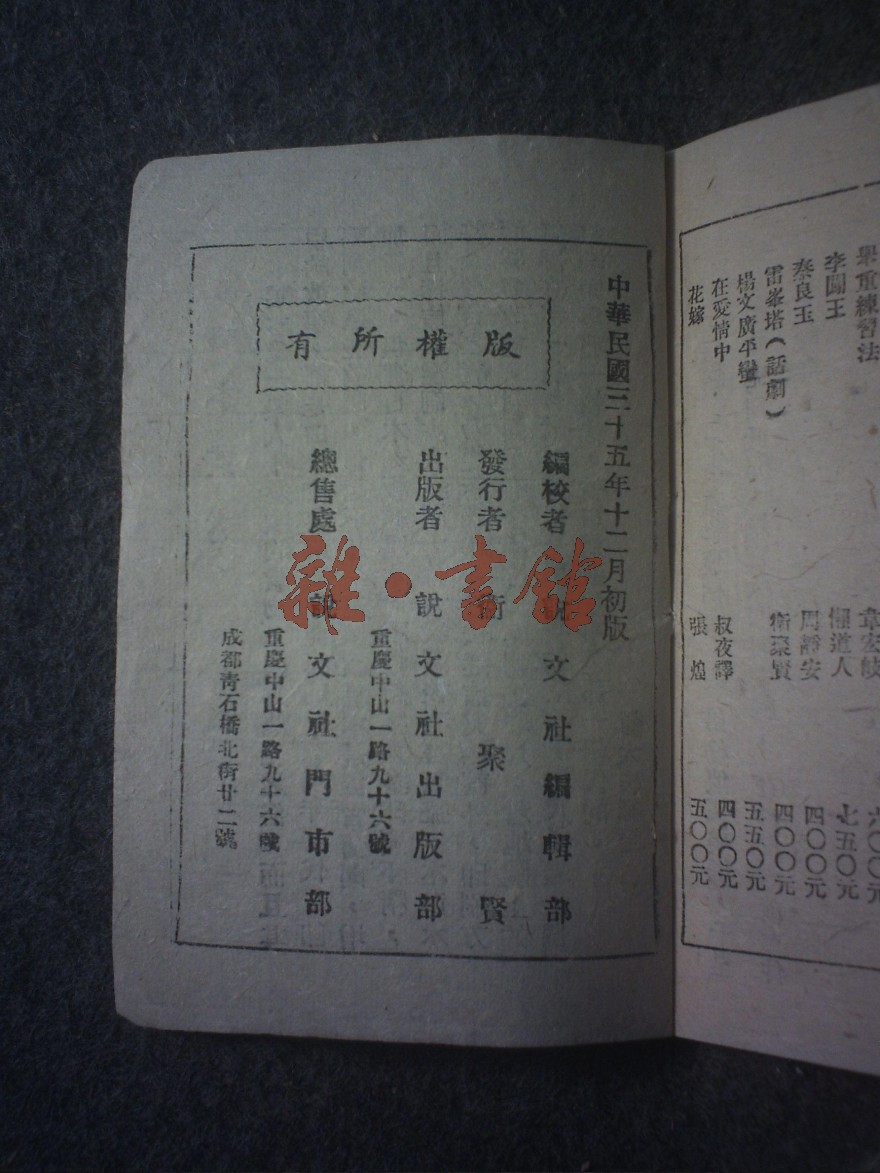 舉重練習法 六〇〇元
李闖王 懶道人 七五〇元
秦良玉 周靜安 四〇〇元
雷峯塔（話劇） 衛聚賢 四〇〇元
楊文廣平蠻 五五〇元
在愛情中 叔夜譯 四〇〇元
花嫁 張煌 五〇〇元
中華民國三十五年十二月初版
版權所有
編校者 說文社編輯部
發行者 衛聚賢
出版者 說文社出版部
重慶中山一路九十六號
總售處 說文社門市部
重慶中山一路九十六號
成都青石橋北街廿二號
雜·書館